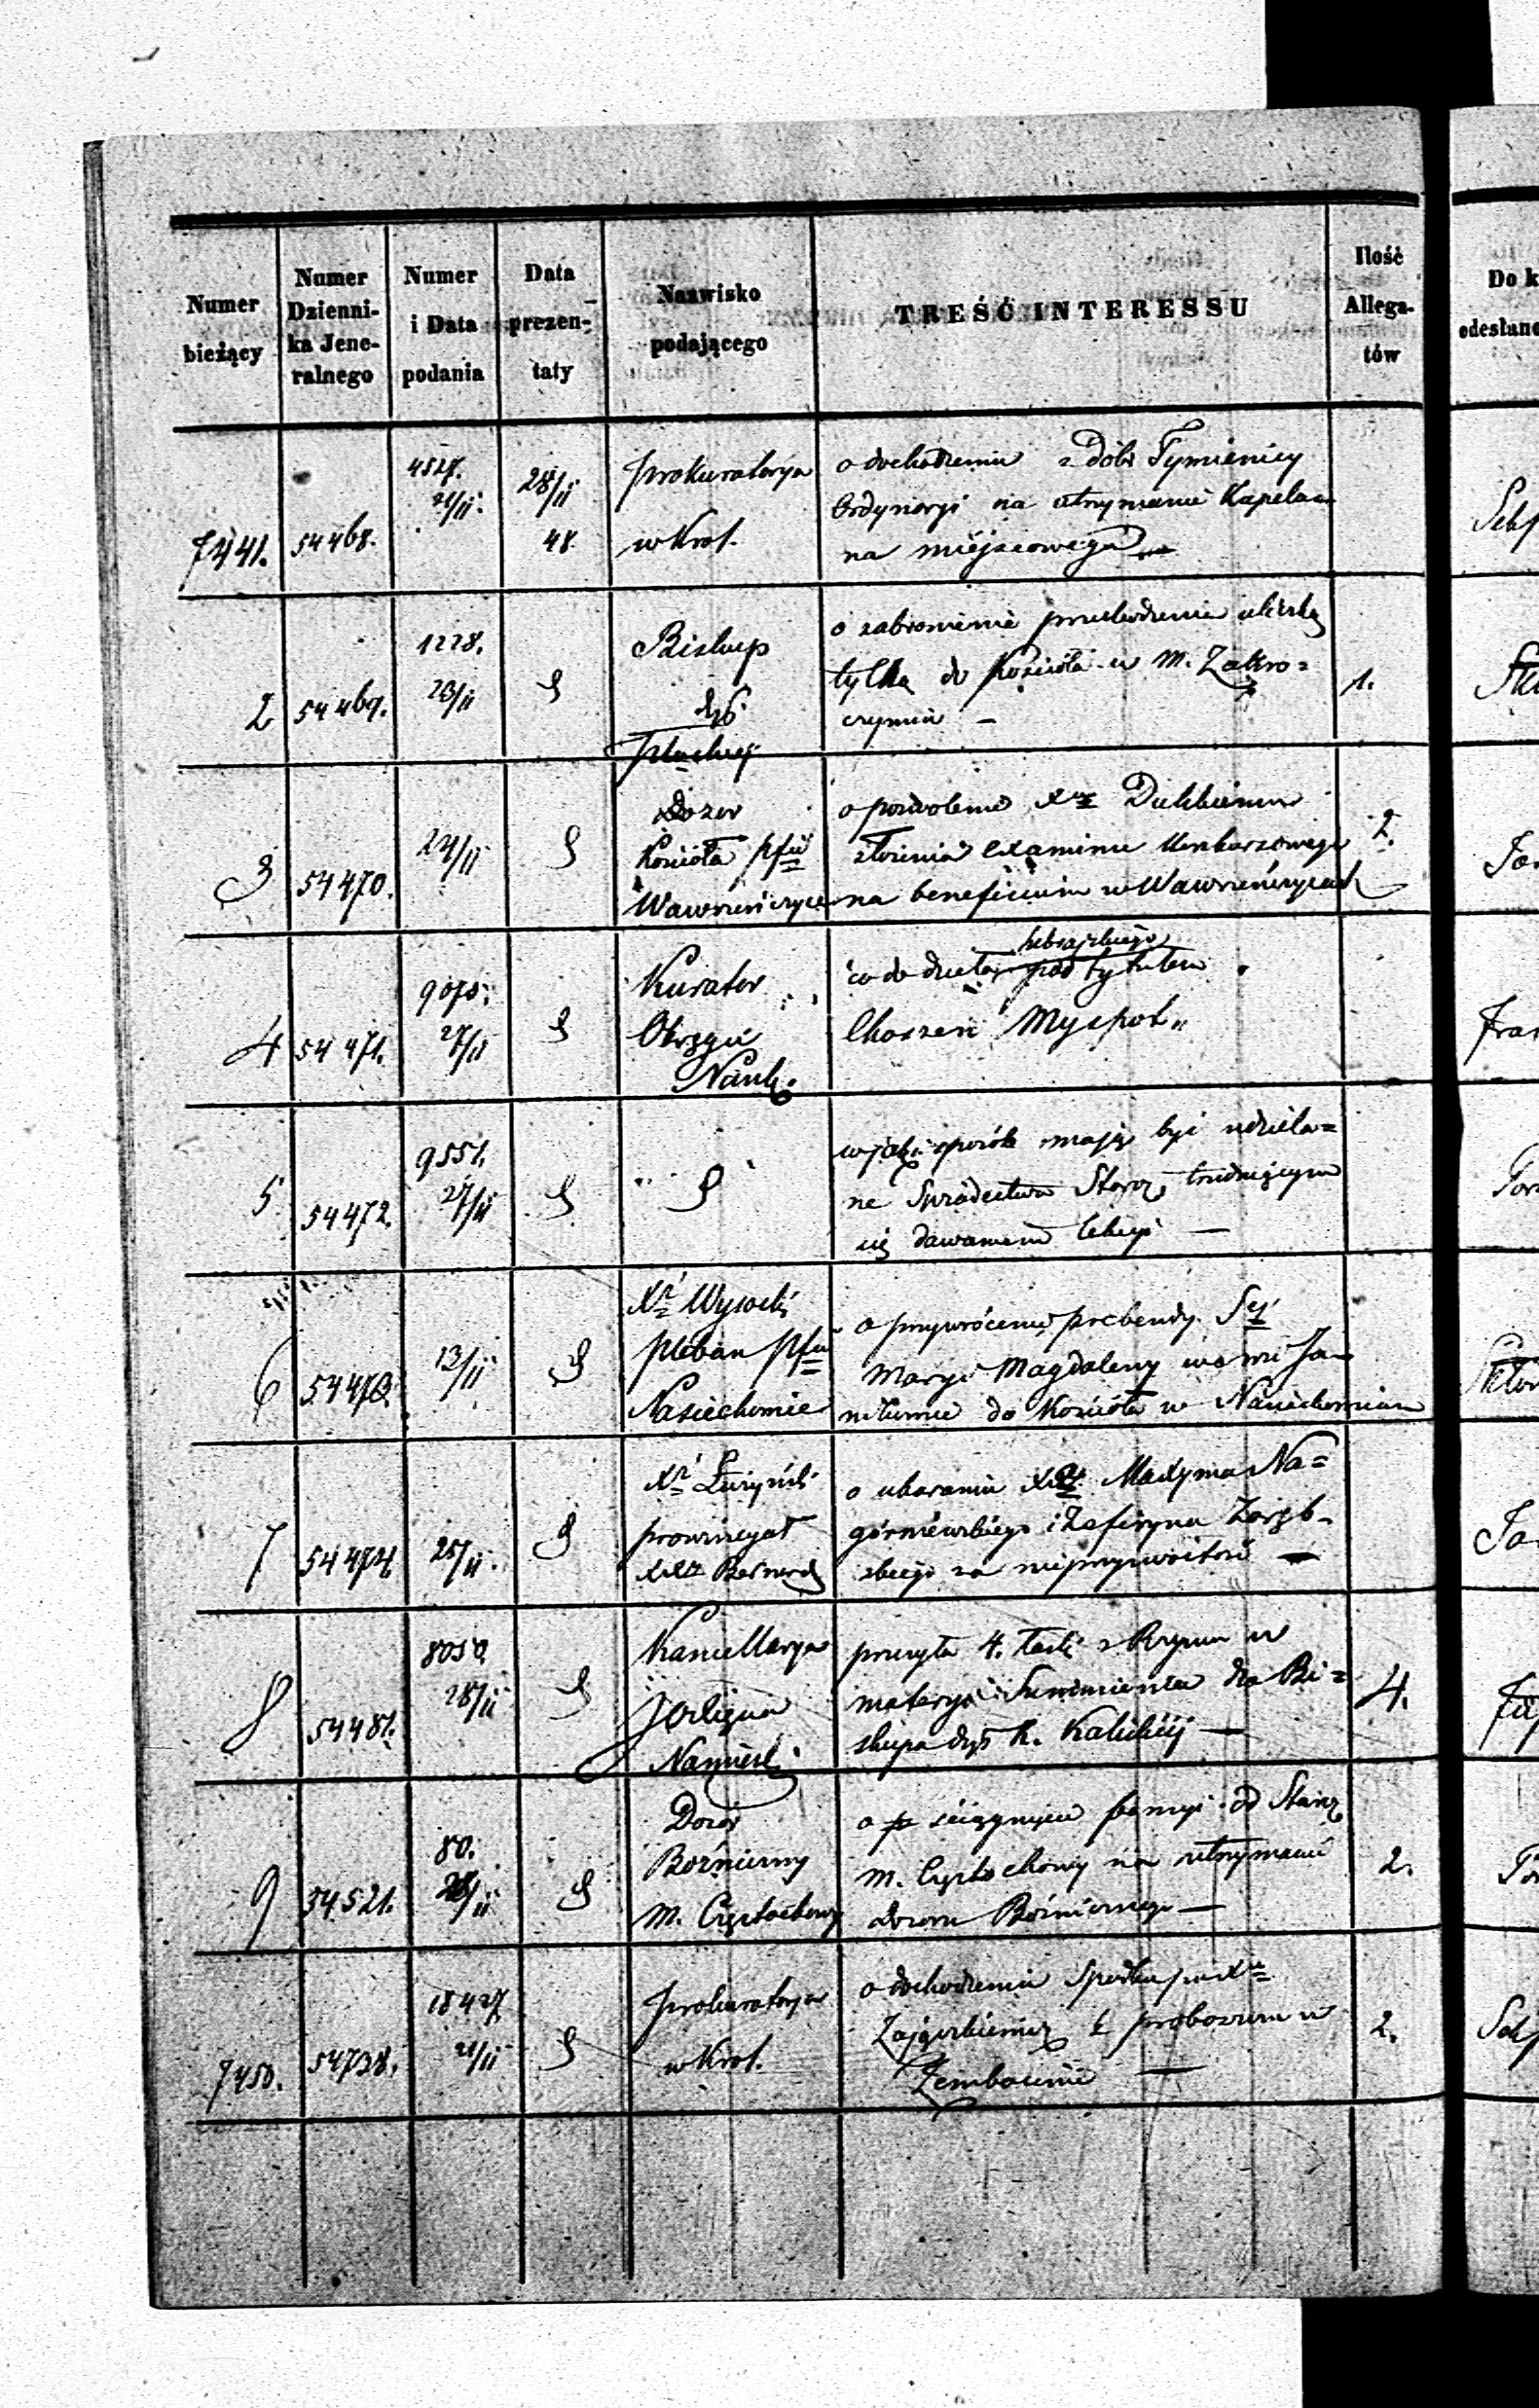 Numer bieżący | Numer Dziennika Jeneralnego | Numer i Data podania | Data prezentaty | Nazwisko podającego | TREŚĆ INTERESSU | Ilość Allegatów
Do k
odesłane
7441. 54468. 4527. 21/11. 28/11 48
Prokuratorya
w Krol.
o dochodzeniu z dóbr Tymienicy
Ordynaryi na utrzymanie Kapela-
na miejscowego
2 54469. 1228. 23/11
Biskup
dyś
Płockiej
o zabronienie przechodzenia uliczką
tylko do Kościoła w M. Zakro=
czymiu –
1.
3 54470. 24/11
Dozor
Kościoła pfii
Wawrzeńczyce
o pozwolenie Xu
złożenia Examinu Konkursowego
na beneficium w Wawrzeńczycach
2.
4 54471. 9070. 27/11
Kurator
Okręgu
Nauk.
co do dzieła hebrajskiego pod tytułem
Choszen Myszpot"
5 54472. 9551. 27/11
w jaki sposób mają być udziela=
ne Świadectwa Staroz. trudniącym
się dawaniem lekcyi —
6 54473. 13/11
Xr Wysocki
pleban pfii
Nasiechowie
o przywrócenie prebendy Stej
Maryi Magdaleny we wsi Ja-
do Kościoła w Nasiechowicach
7 54474. 25/11.
Xr
prowincyał
XXr Bernard
o ukaranie XXr Maxyma Na=
górniewskiego i Zefiryna Zaręb-
skiego za nieprzyzwoitość —
8 54481. 8050. 28/11
Kancellarya
JO. Xięcia
Namiest.
przesyła 4. z Rzymu w
materyi dla Bi=
skupa dyś K. Kaliskiej —
4.
9 54521. 80. 28/11
Dozór
Bożniczny
m. Częstochowy
o ściągnięcie pensyi od Staroz
m. Częstochowy na utrzymanie
dozoru Bóżnicznego —
2.
7450. 54738. 18427 21/11
Prokuratorya
w Krol.
o dochodzeniu Spadku po Xu
Zajączkiewicz b. proboszczu w
Zembocinie —
2.